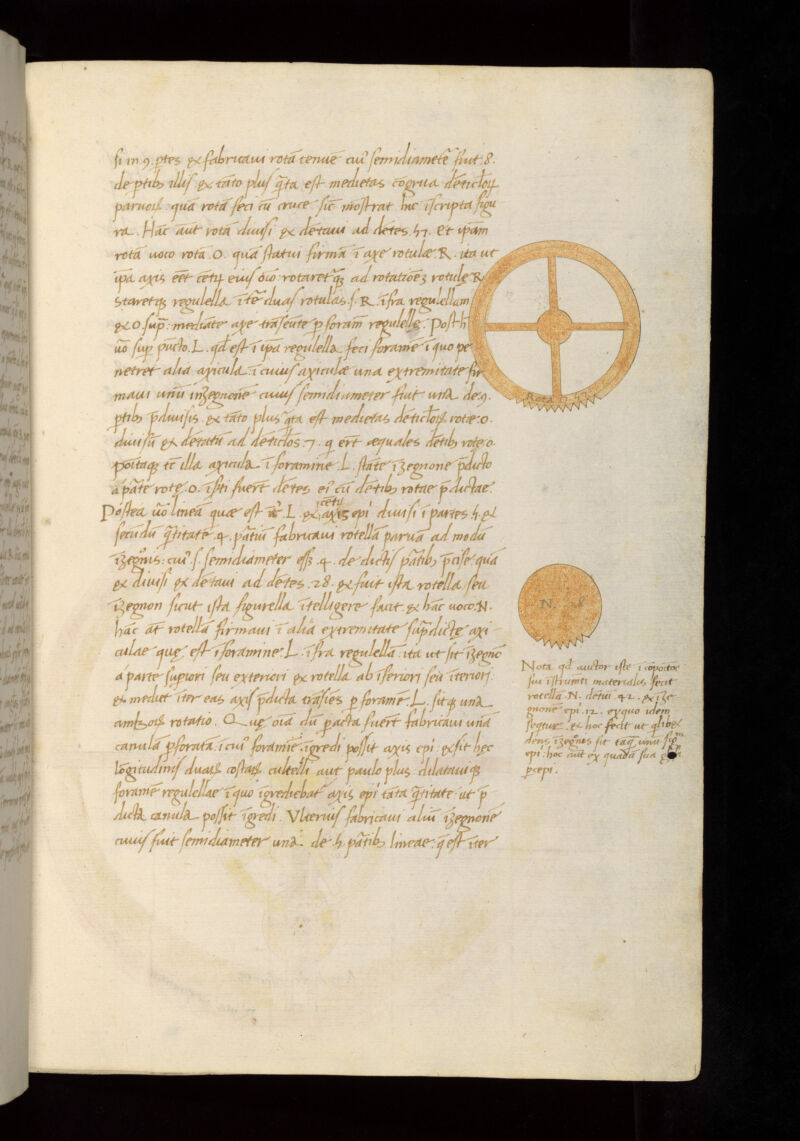 si in .9. ptes et fabricaui rotã tenuẽ cuiꝰ semidiameter fuit 8.
de ptibꝰ illis et tãto plus quãta est medietas cõgrua dẽticlorꝝ
paruorꝝ. quã rotã seci cũ cruce sic mostrat hic iscripta figu
ra. Hãc aut rotã diuisi et dẽtaui ad dẽtes .57. et ipam
rotã uoco rotã O. quã statui firmã ĩ axe rotulae R. ita ut
ipa axis eẽt cẽtrꝝ eius
staretqꝫ regulella iter duas rotulas .s. R. ifra regulellam
et O supra mediate axe trãseunte p foramẽ regulelle. Post h
uõ sup pũcto .L. qd est ĩ ipa regulella feci foramẽ ĩ quo pe
netret alia axicula ĩ cuius axiculae una extremitate fir
maui unũ inzegnonẽ cuius semidiameter fuit una de .9.
ptibꝰ pdiuisis et tãto plus quãta est medietas dẽticlorꝝ rotae .o.
diuisũ et dẽtatũ ad dẽticlos .7. q ert aequales dẽtibꝰ rote .o.
poitaqꝫ illa axicula ĩ foramine .L. stãte izegnone pdicto
a parte rote .O. isti fuert dẽtes eiꝰ cũ dẽtibꝰ rotae pdictae.
Postea uõ lineã quae est itr L et cẽtrꝝ axis epi diuisi ĩ partes .5. et
secundũ quãtitatẽ .4. partiũ fabricaui rotellã paruã ad modũ
izegnõis: cuiꝰ .s. semidiameter esset .4. de dictis pãtibꝰ pcise. quã
et diuisi et dẽtaui ad dẽtes .28. et fuit ista rotella seu
izegnon sicut ista figurella ĩtelligere facit. et hãc uoco .N.
hãc at rotellã firmaui ĩ alia extremitate supradictę axi
culae quę est i foramine .L. ifra regulellã ita ut sit izegnõ
a parte supiori seu exteriori et rotella ab iferiori seu iteriori.
et mediet iter eas axis pdicta trãsiẽs p foramẽ .L. sitqꝫ una
ambꝝ rotatio. Quę oĩa dũ pacta fuert fabricaui unã
canulã pforatã ĩ cuiꝰ foramie igredi possit axis epi. et sit hęc
lõgitudinis duaꝝ costaꝝ cultelli aut paulo plus. dilatauiqꝫ
foramẽ regulellae ĩ quo igrediebat axis epi tãta quãtitate ut p
dicta canula possit igredi. Vlterius fabricaui aliũ izegnonẽ
cuius fuit semidiameter una de 5 pãtibꝰ lineae. q est iter
Rota O 57
N. 28
Nota qd auctor iste ĩ cõpõitõe
sui istrumti materialis fecit
rotellã N. dẽtiũ 42. et ize
gnonẽ epi .12. ex quo idem
sequit. et hoc fecit ut qlibet
dens izegnõis sit tãqꝫ unũ
epi. hoc aut ex quadã sua
pcepi.